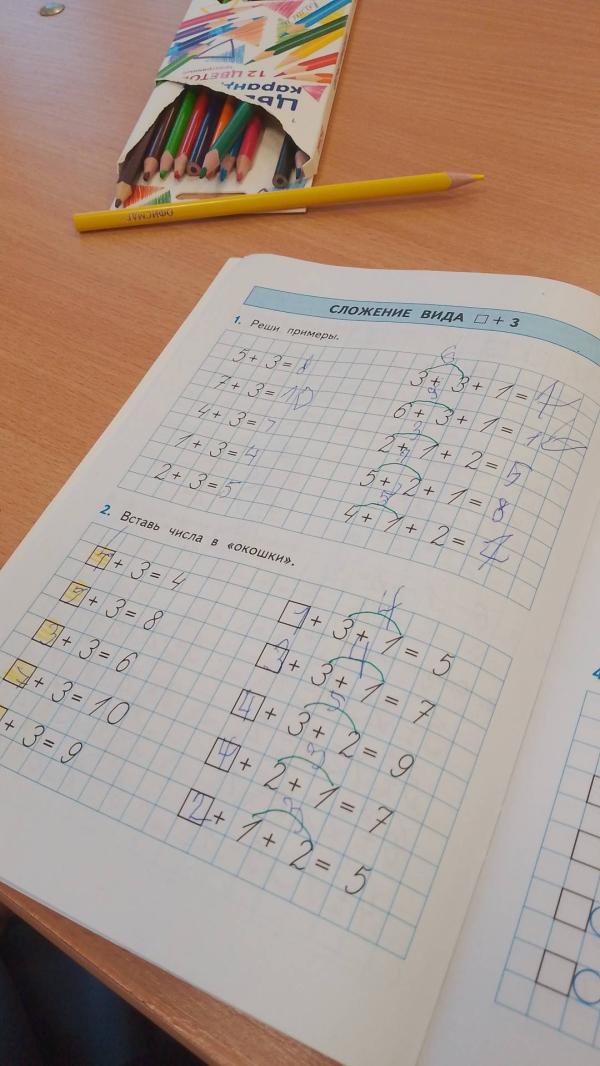 12 ЦВЕТО
ЦВ
каран
ОФИСМАГ
СЛОЖЕНИЕ ВИДА □ + 3
1. Реши примеры.
5 + 3 = 8
7 + 3 = 10
4 + 3 = 7
1 + 3 = 4
2 + 3 = 5
6
3 + 3 + 1 =
9
6 + 3 + 1 = 10
3
2 + 1 + 2 = 5
7
5 + 2 + 1 = 8
5
4 + 1 + 2 = 7
2. Вставь числа в «окошки».
+ 3 = 4
+ 3 = 8
3 + 3 = 6
+ 3 = 10
+ 3 = 9
4
1 + 3 + 1 = 5
4
3 + 3 + 1 = 7
5
4 + 3 + 2 = 9
3
4 + 2 + 1 = 7
3
2 + 1 + 2 = 5